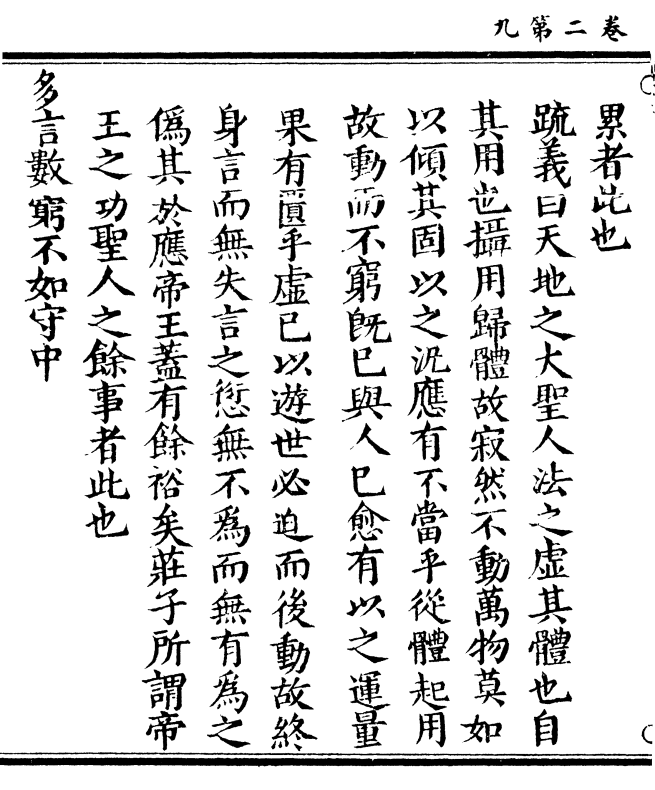 卷二第九
累者此也
疏義曰天地之大聖人法之虛其體也自
其用也攝用歸體故寂然不動萬物莫如
以傾其固以之況應有不當乎從體起用
故動而不窮既已與人已愈有以之運量
果有匱乎虛已以遊世必迫而後動故終
身言而無失言之愆無不為而無有為之
僞其於應帝王蓋有餘裕矣莊子所謂帝
王之功聖人之餘事者此也
多言數窮不如守中